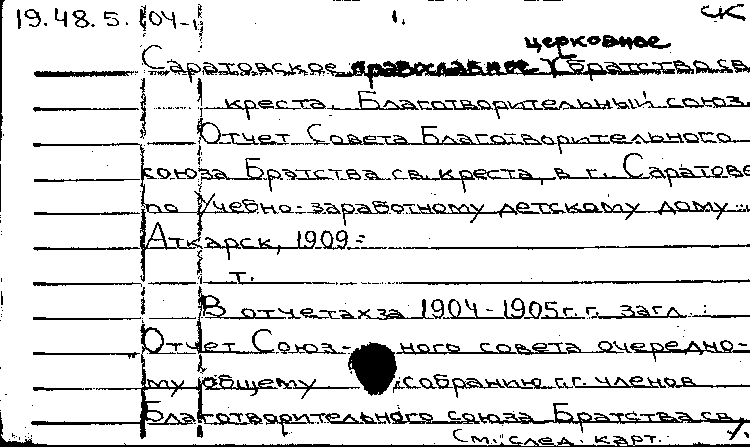 19.48.5. 04- 1. СК
церковное
Саратовское православное братство св.
креста. Благотворительный союз.
Отчет Совета Благотворительного
союза Братства св. креста, в г. Саратове
по Учебно-заработному детскому дому ...
Аткарск, 1909 -
т.
В отчетах за 1904-1905 г.г. загл.:
„Отчет Союз- ного совета очередно-
му общему собранию г.г. членов
Благотворительного союза Братства св.
См. след. карт.